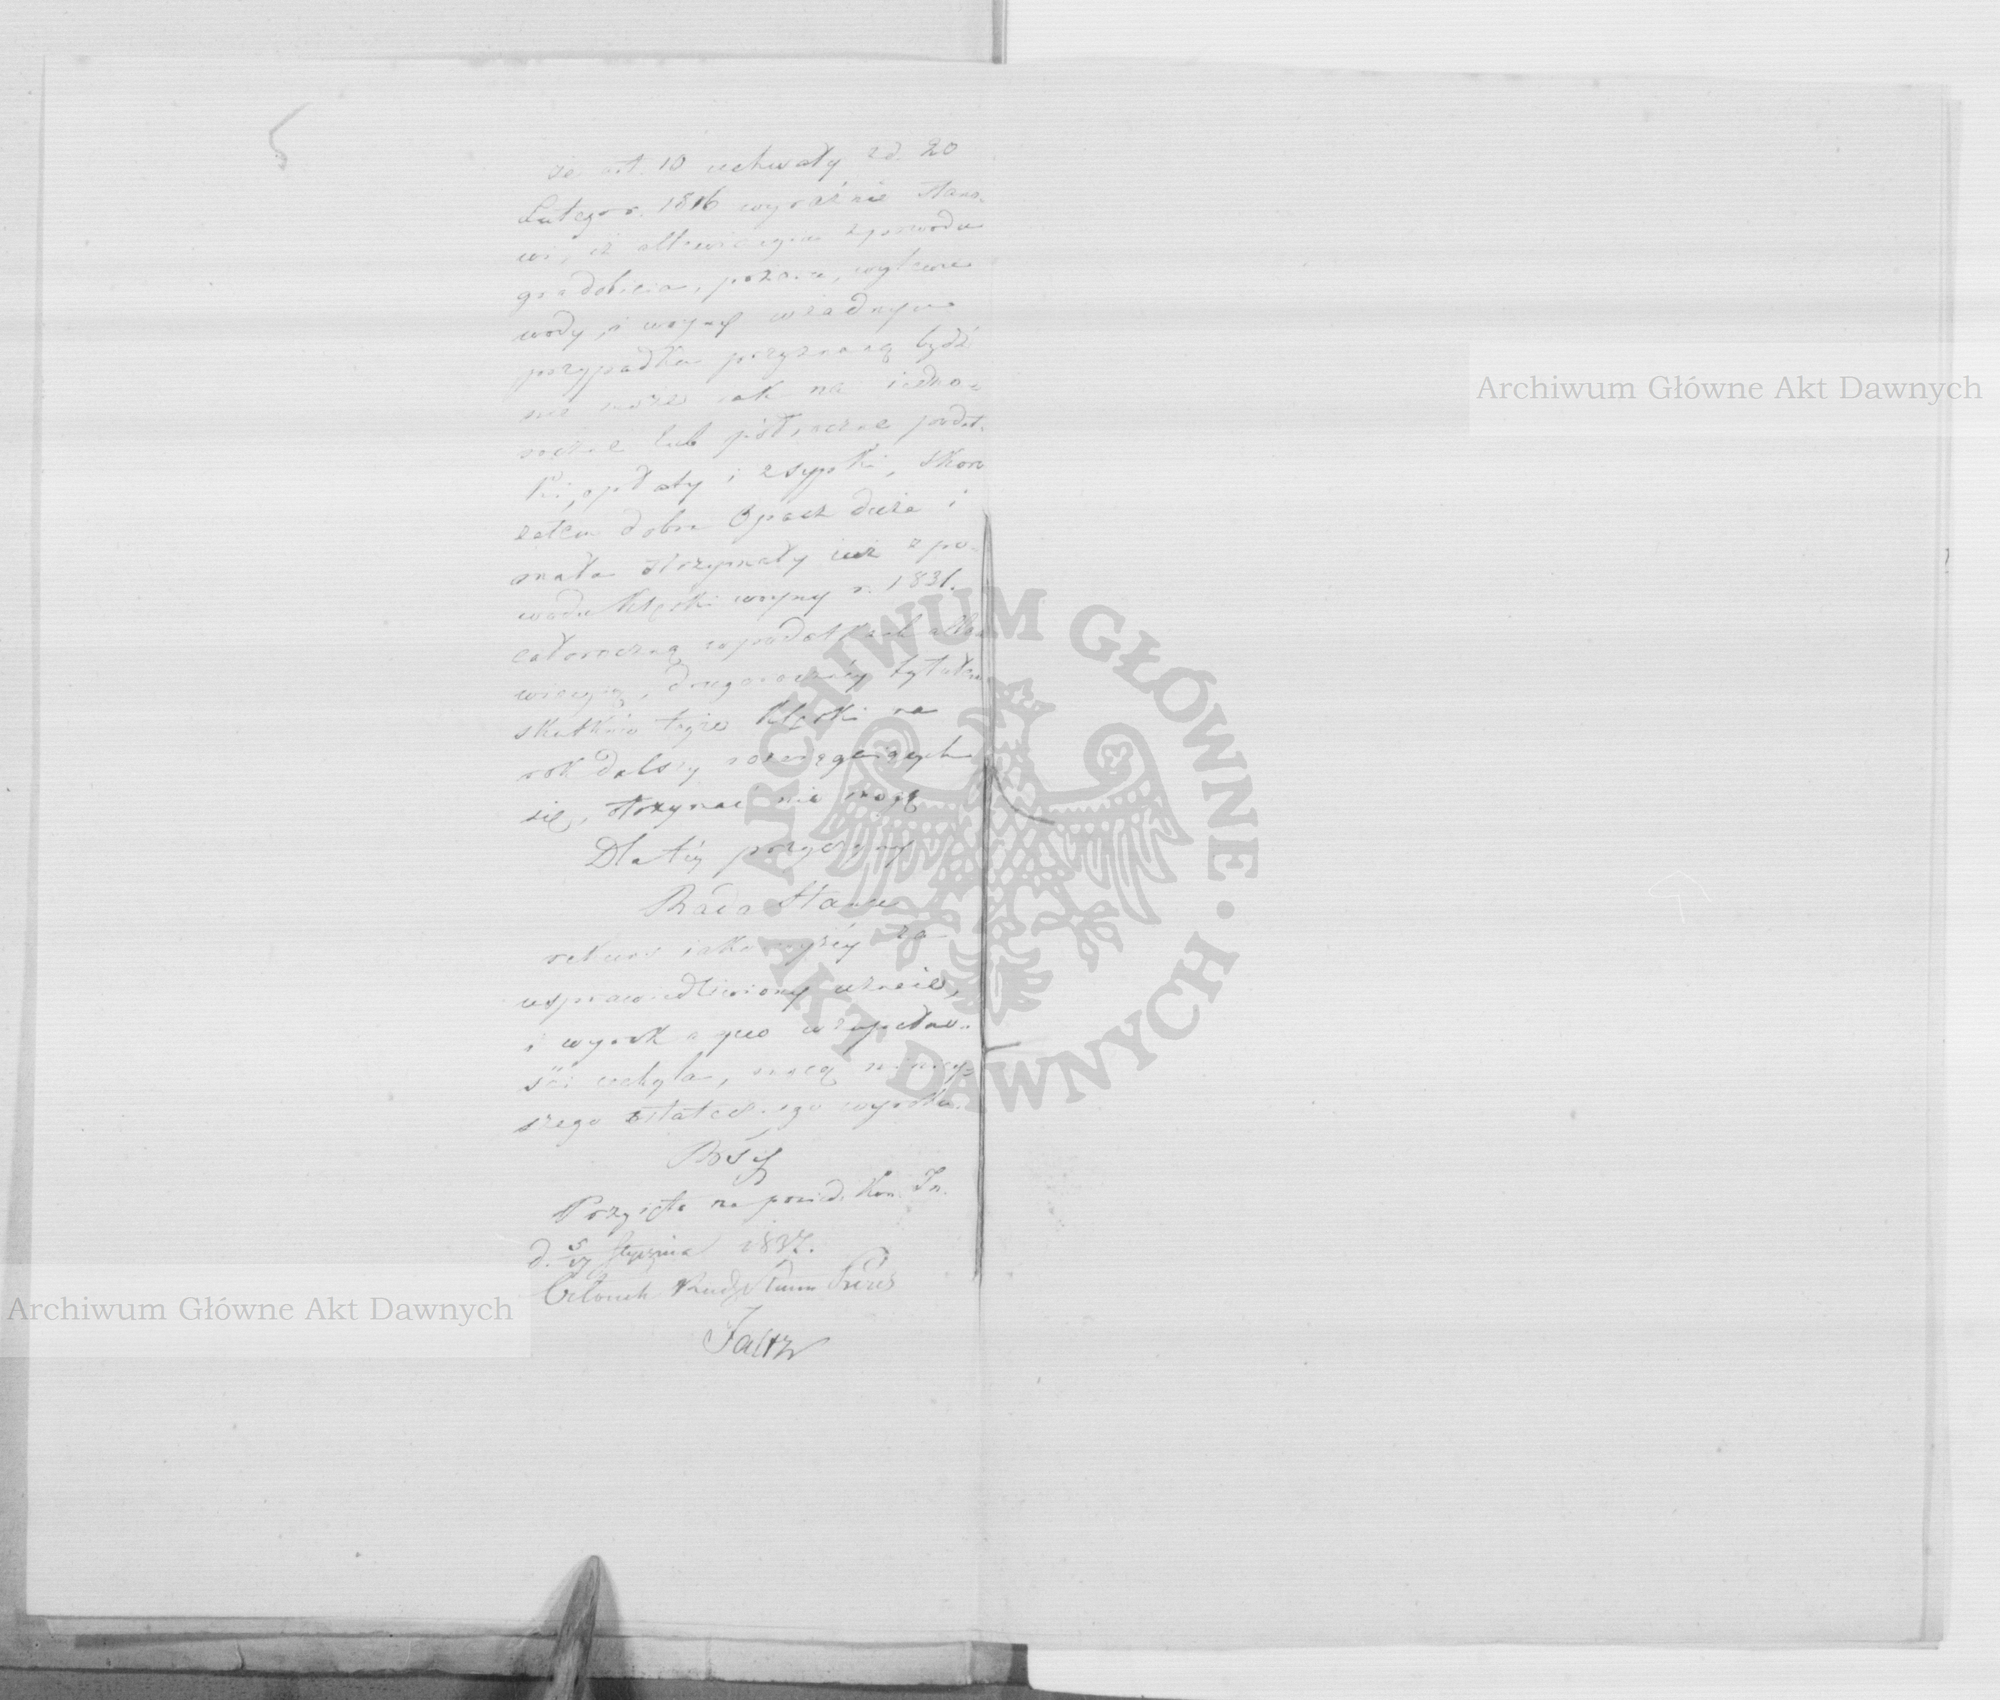 że art. 10 uchwały zd. 20
Lutego r. 1816 wyraźnie stano-
wi, iż allewiacyia zpowodu
gradobicia, pożaru, wylewu
wody, i woyny wżadnym
przypadku przyznaną bydź
nie może jak na iedno-
roczne lub półroczne podat-
ki, opłaty i zsypki, skoro
zatem dobra Opacz duża i
mała otrzymały iuż zpo-
wodu klęski woyny r. 1831.
całoroczną wpodatkach alle-
wiacyią, drugoroczney tytułem
skutków teyże klęski na
rok dalszy rozciągaiących
się, otrzymać nie mogą
Dla tey przyczyny
Rada Stanu
rekurs iako wyżey za
usprawiedliwiony uznaie,
i wyrok a quo wzupełno-
ści uchyla, mocą ninie-
szego ostatecznego wyroku.
Przyięto na posied. Kom. In.
d. 5/17 Stycznia 1837.
Członek Rady Stanu Prezes
Faltz
ARCHIWUM GŁÓWNE AKT DAWNYCH
Archiwum Główne Akt Dawnych
Archiwum Główne Akt Dawnych